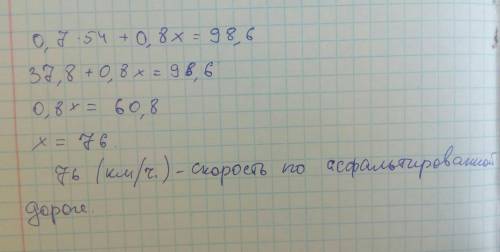 0,7·54 + 0,8x = 98,6
37,8 + 0,8x = 98,6
0,8x = 60,8
x = 76.
76 (км/ч.) - скорость по асфальтированной
дороге.